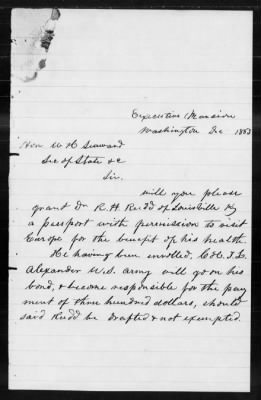 Executive Mansion
Washington Dec 1863
Hon W H Seward
Sec of State &c
Sir.
will you please
grant Dr R. H. Rudd of Louisville Ky
a passport with permission to visit
Europe for the benefit of his health.
He having been enrolled, Col T. L.
Alexander U.S. Army will go on his
bond, & become responsible for the pay
ment of three hundred dollars, should
said Rudd be drafted & not exempted.